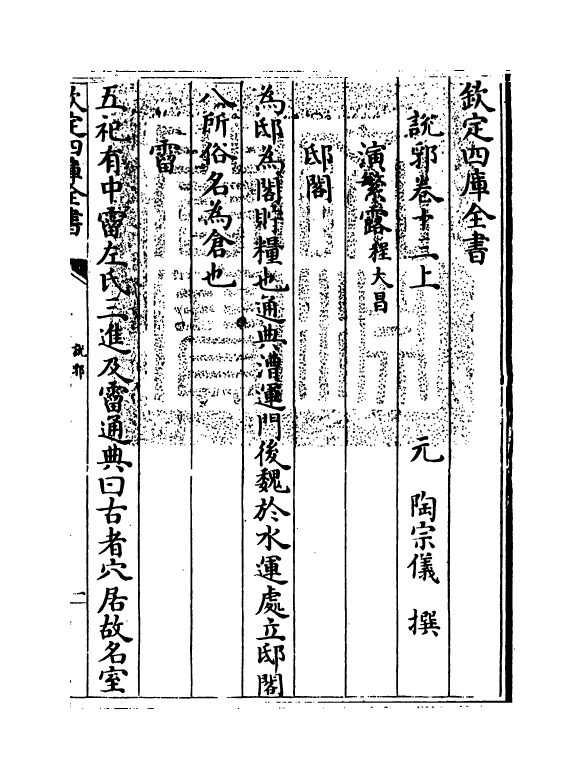 欽定四庫全書
說郛卷十三上
元 陶宗儀 撰
演繁露程大昌
邸閣
為邸為閣貯糧也通典漕運門後魏於水運處立邸閣
八所俗名為倉也
霤
五祀有中霤左氏三進及霤通典曰古者穴居故名室
欽定四庫全書
說郛